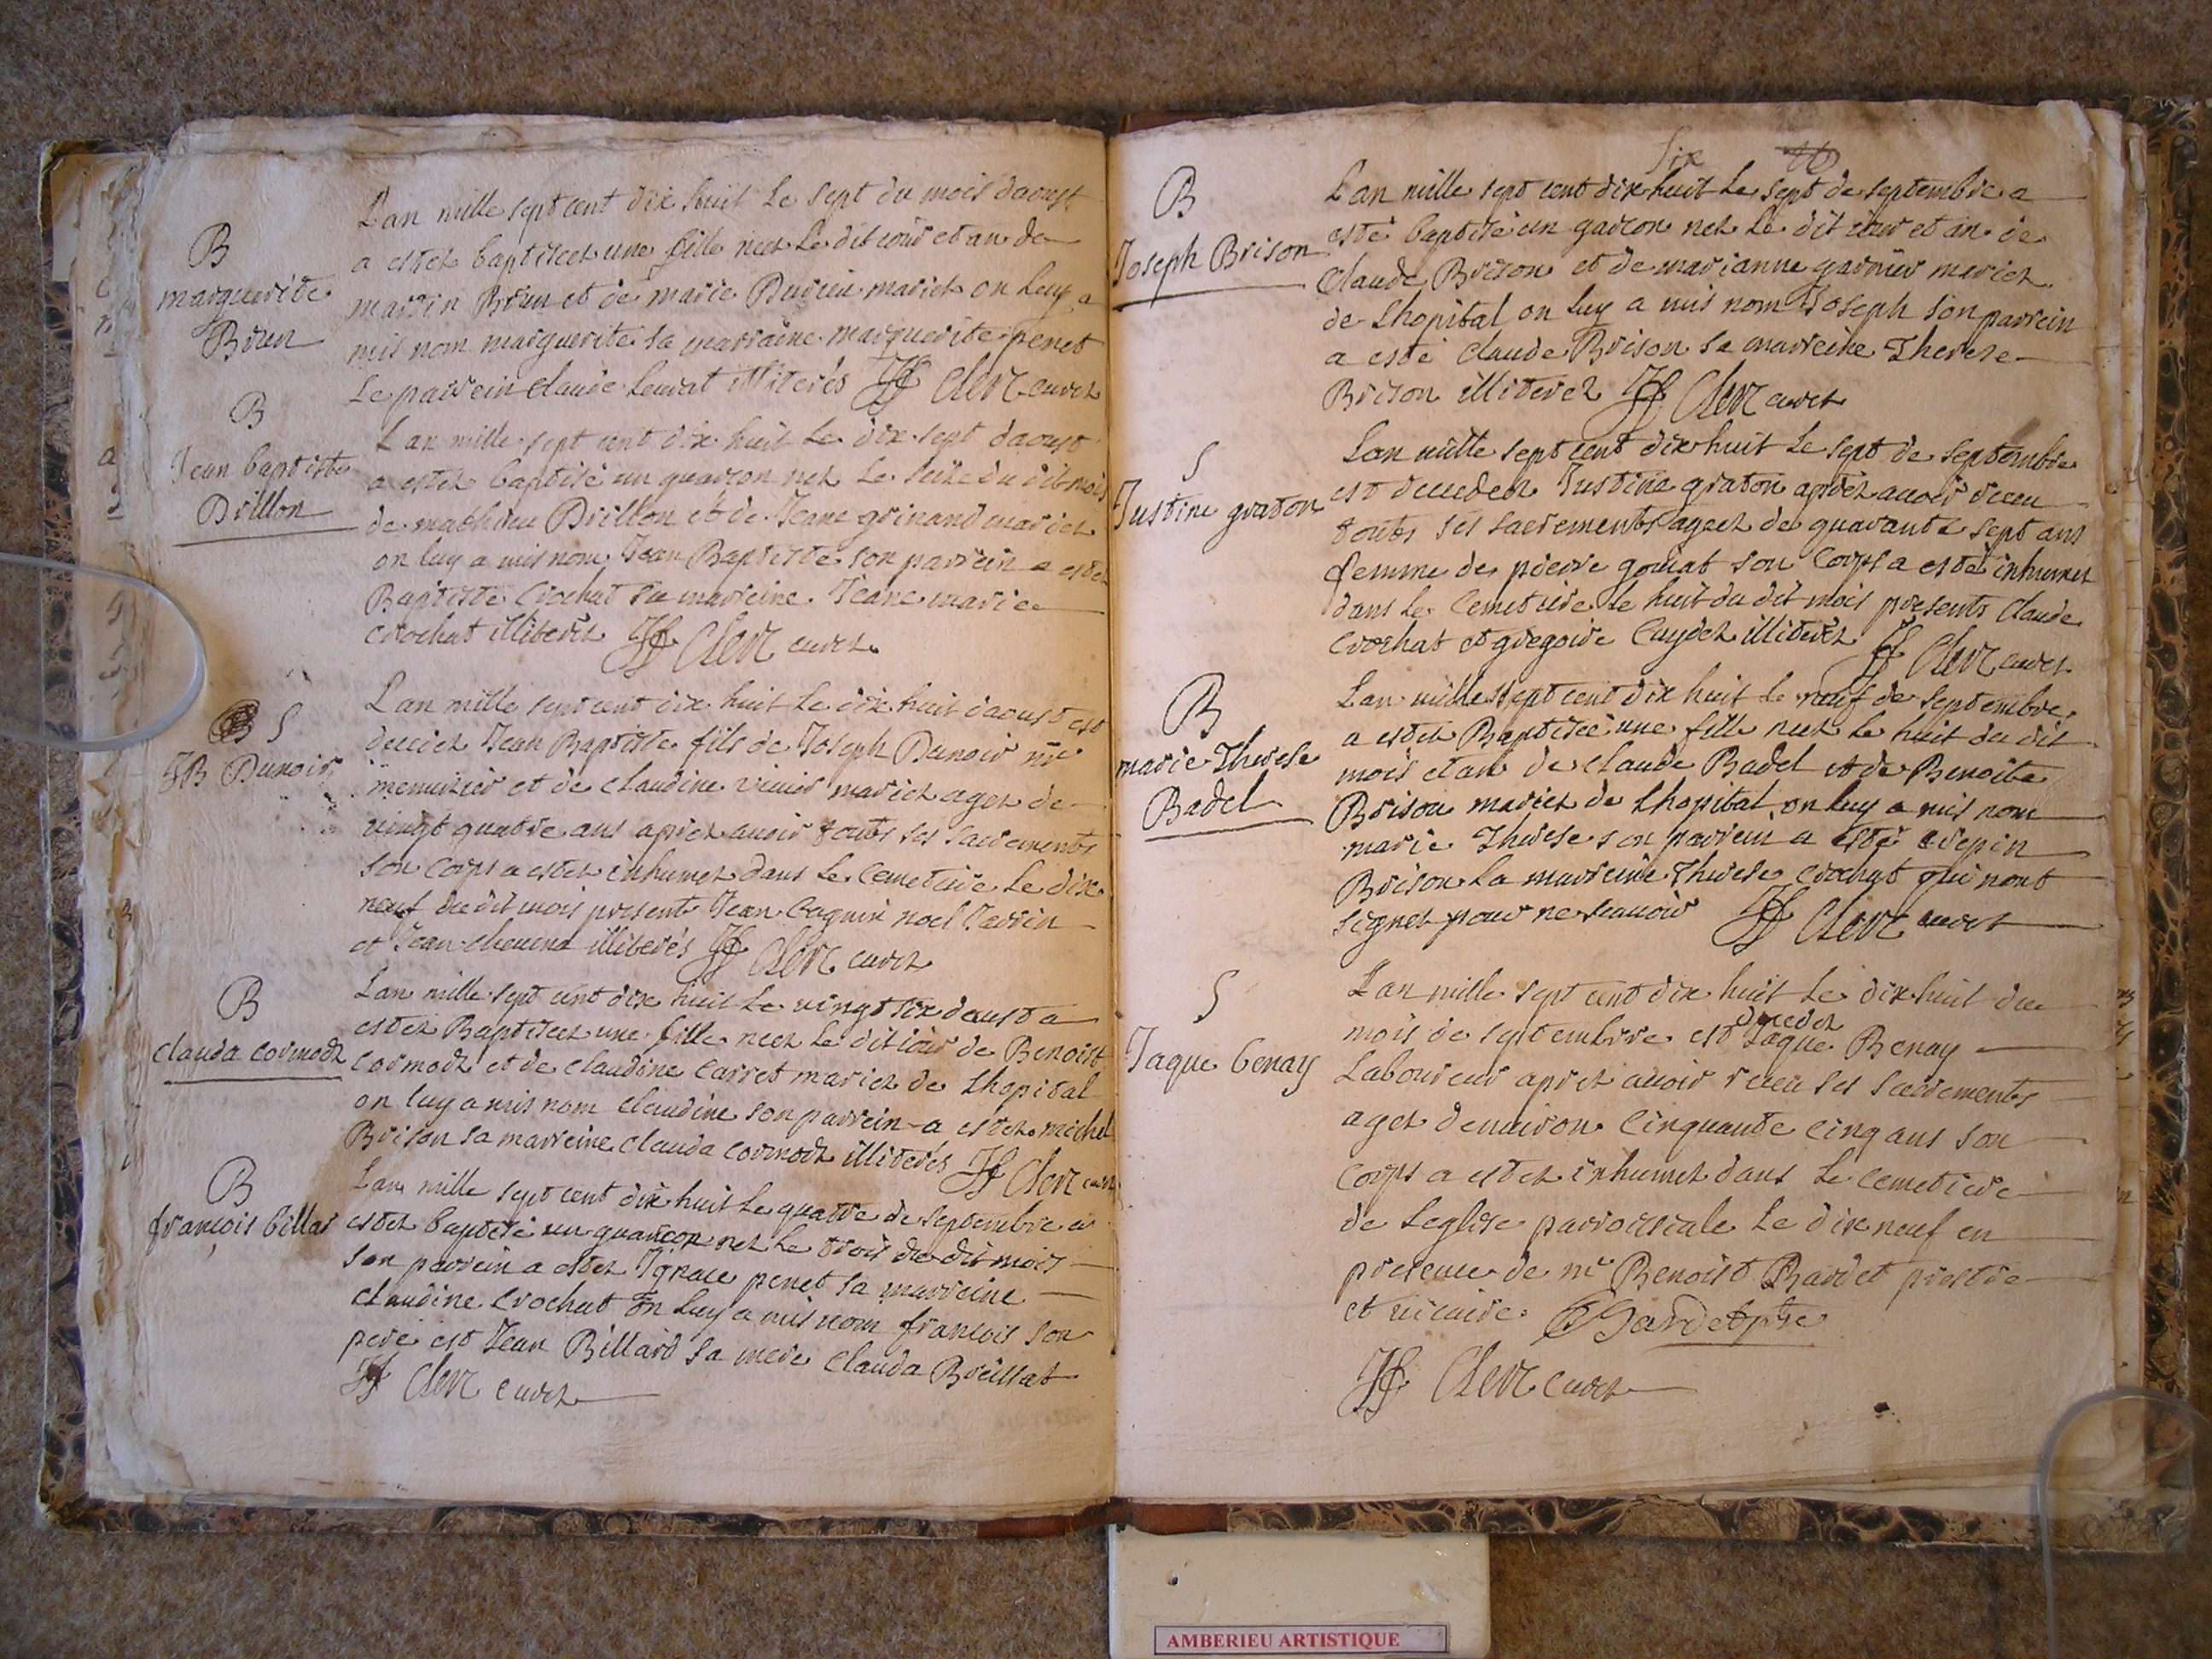 B
marguerite
Brun
L'an mille sept cent dix huit Le sept du mois daoust
a estez baptisez une fille neez Le dit iour et an de
martin Brun et de marie Durieu mariez on Luy a
mis nom marguerite sa marraine marguerite penet
Le parrein claude Leurat illiterés JF Clerc curez
B
Jean baptiste
Drillon
L'an mille sept cent dix huit Le dix sept daoust
a estez baptisé un guarcon nez Le seize du dit mois
de mathieu Drillon et de Jeane grinand mariez
on luy a mis nom Jean Baptiste son parrein a estez
Baptiste Crochat sa marreine Jeane marie
crochat illiterés JF Clerc curez
S
JB Dunoir
L'an mille sept cent dix huit Le dix huit daoust est
decedez Jean Baptiste fils de Joseph Dunoir mr
menuizier et de claudine mariez agez de
vingt quatre ans aprez avoir touts ses sacrements
son corps a estez inhumez dans Le Cemetiere Le dix
neuf du dit mois present Jean noel
et Jean illiterés JF Clerc curez
B
Clauda cormoz
L'an mille sept cent dix huit Le vingt six daust a
estez Baptisez une fille neez Le dit iour de Benoist
Cormoz et de claudine Carret mariez de Lhopital
on luy a mis nom claudine son parrein a estez michel
Brison sa marreine clauda cormoz illiterés JF Clerc curez
B
françois billar
L'an mille sept cent dix huit Le quatre de septembre a
estez baptisé un guarcon nez Le trois du dit mois
son parrein a estez Ignace penet sa marreine
claudine Crochat on Luy a mis nom francois son
pere est Jean Billard sa mere Clauda Breillat
JF Clerc curez
B
Joseph Brison
six
L'an mille sept cent dix huit Le sept de septembre a
esté baptisé un garcon nez Le dit iour et an de
Claude Brison et de marianne garnier mariez
de Lhopital on luy a mis nom Joseph son parrein
a esté claude Brison sa marreine Therese
Brison illiterez JF Clerc curez
S
Justine graton
L'an mille sept cent dix huit Le sept de septembre
est decedez Justine graton aprez auoir receu
touts ses sacrements agez de quarante sept ans
femme de pierre goniat son Corps a esté inhumez
dans Le Cemetiere Le huit du dit mois presents Claude
Crochat et gregoire illiterez JF Clerc curez
B
marie Therese
Badel
L'an mille sept cent dix huit Le neuf de septembre
a estez Baptisée une fille neez Le huit du dit
mois et an de claude Badel et de Benoite
Brison mariez de Lhopital on luy a mis nom
marie Therese son parrein a esté crepin
Brison La marreine Therese Crochat qui nont
signez pour ne scauoir JF Clerc curez
S
Jaque benay
L'an mille sept cent dix huit Le dix huit du
mois de septembre est decedez Jaque Benay
Laboureur aprez auoir receu ses sacrements
agez denuiron Cinquante cinq ans son
Corps a estez inhumez dans Le Cemetiere
de Leglise parroissiale Le dix neuf en
presence de mr Benoist Bardet prestre
et uicaire Bardet ptre
JF Clerc curez
AMBERIEU ARTISTIQUE